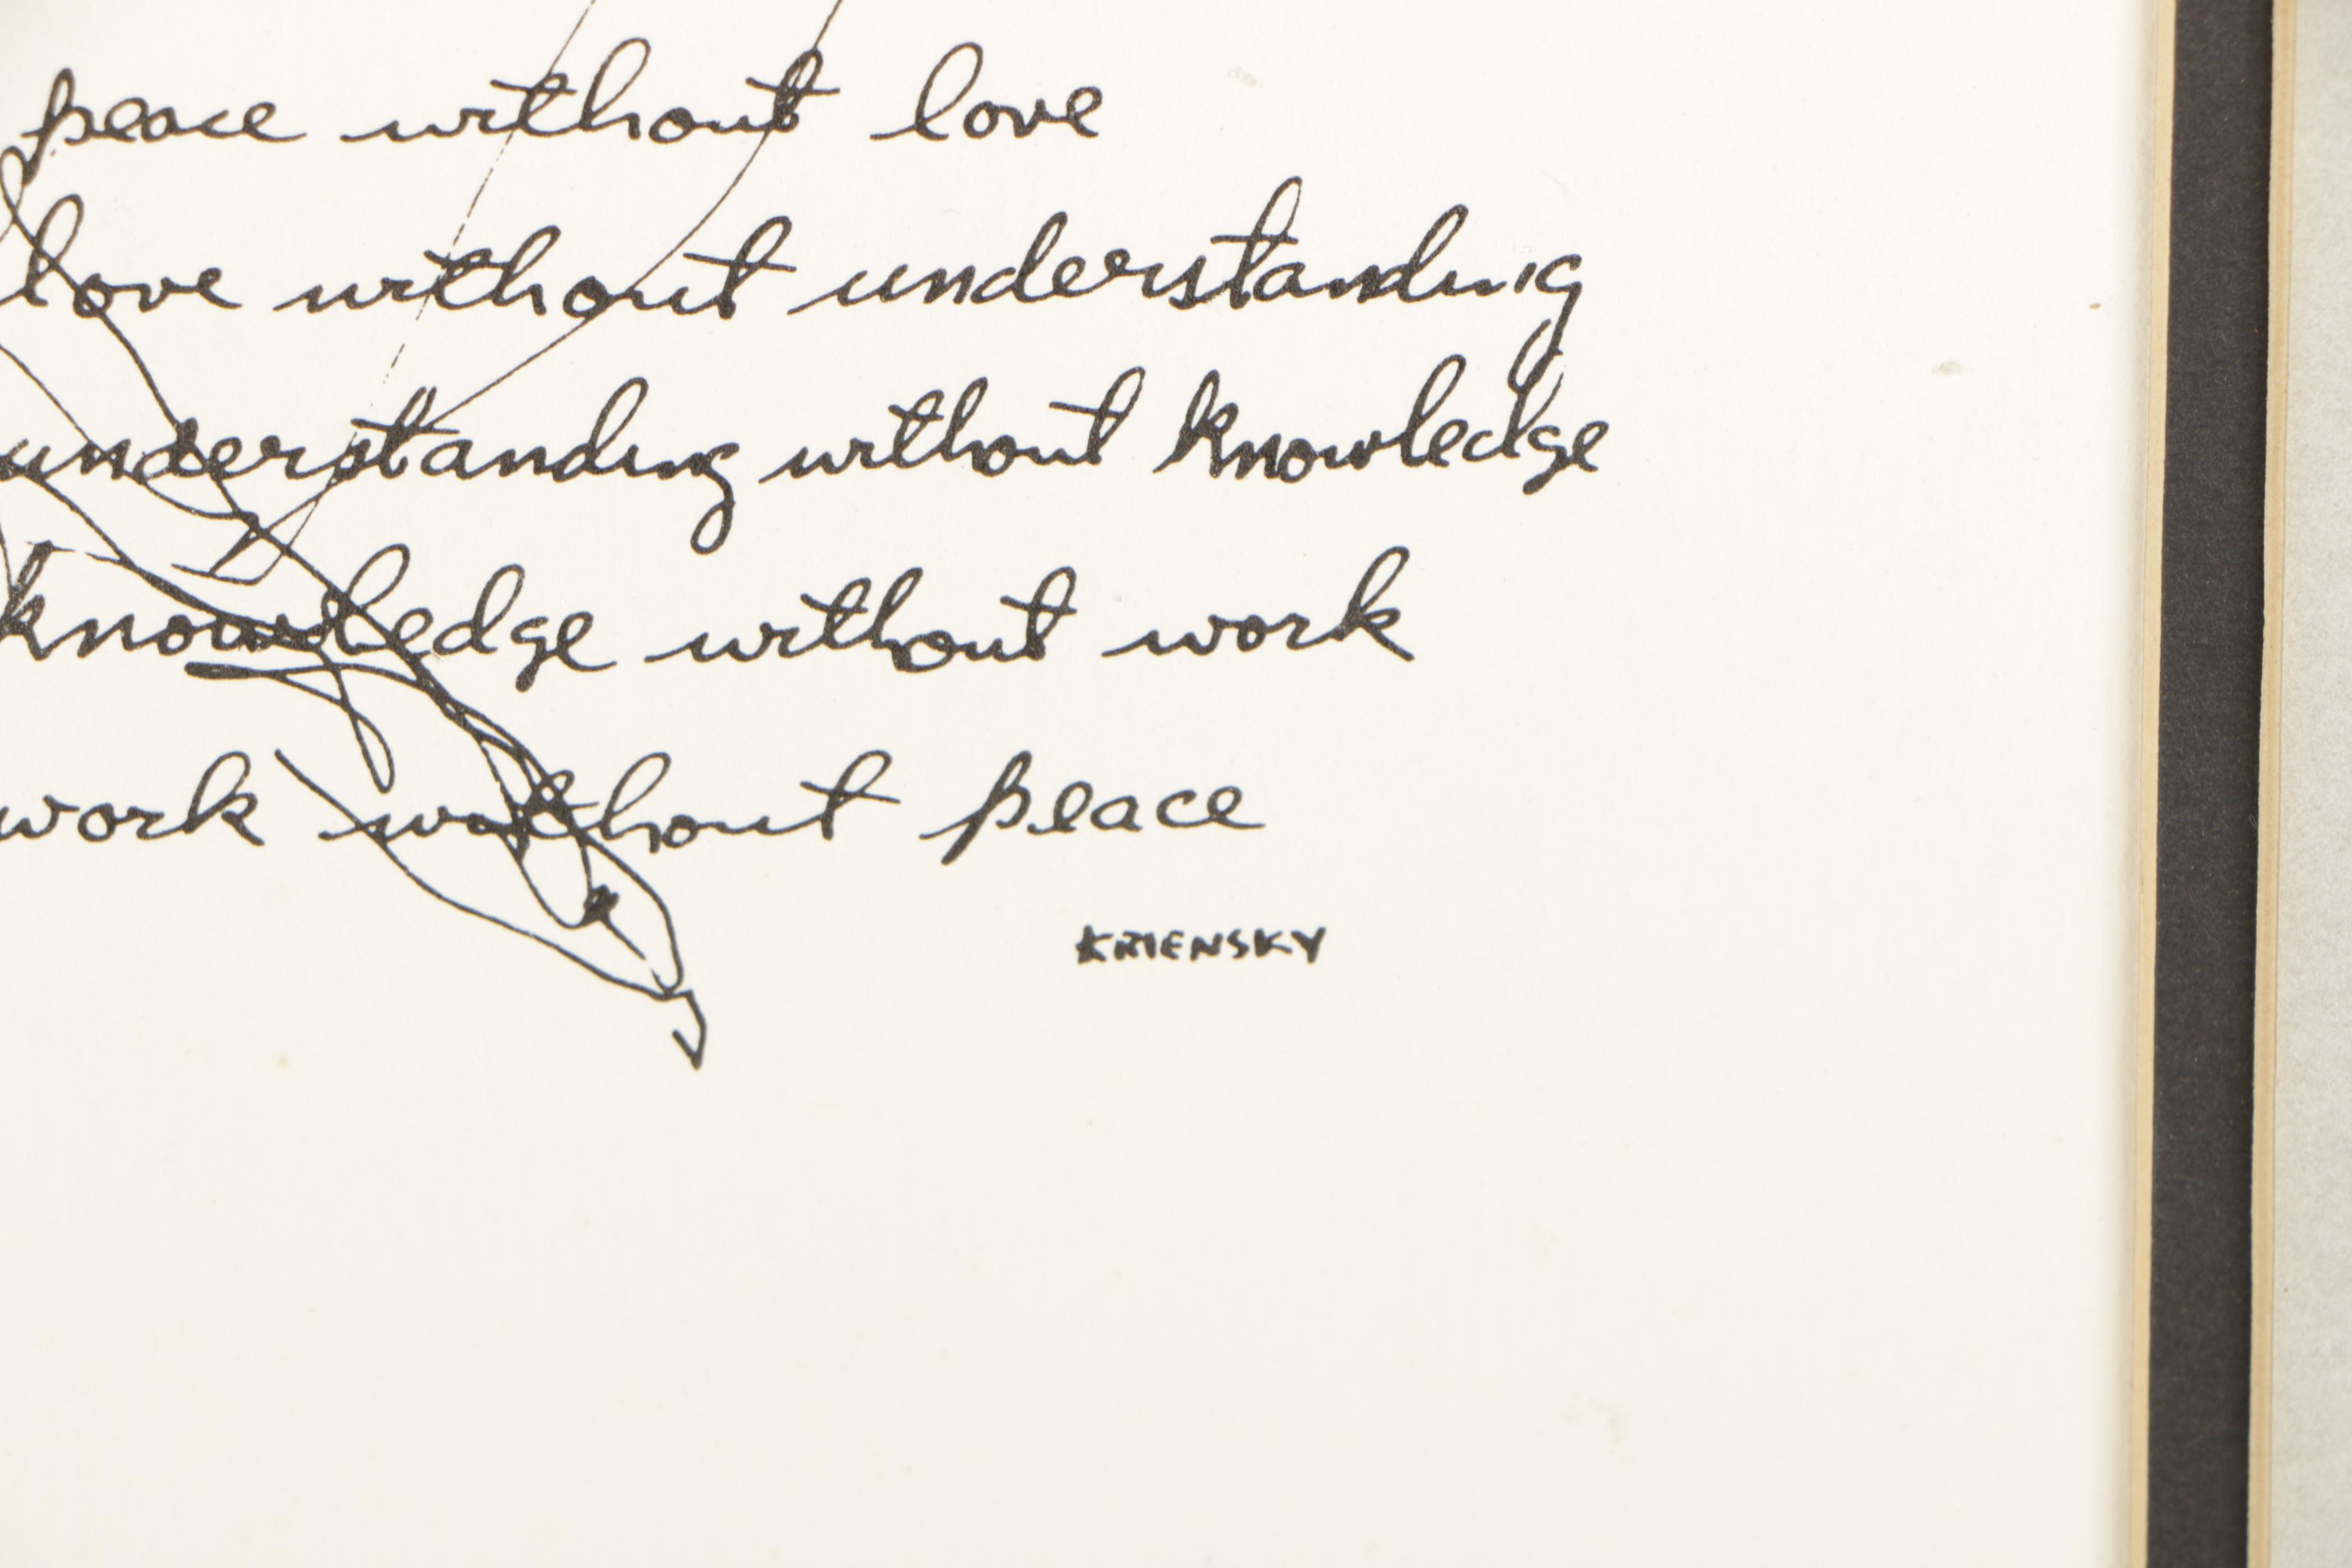 peace without love
love without understanding
understanding without knowledge
knowledge without work
work without peace
KRIENSKY